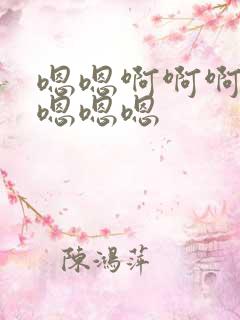 嗯嗯啊啊啊
嗯嗯嗯
陳鴻萍